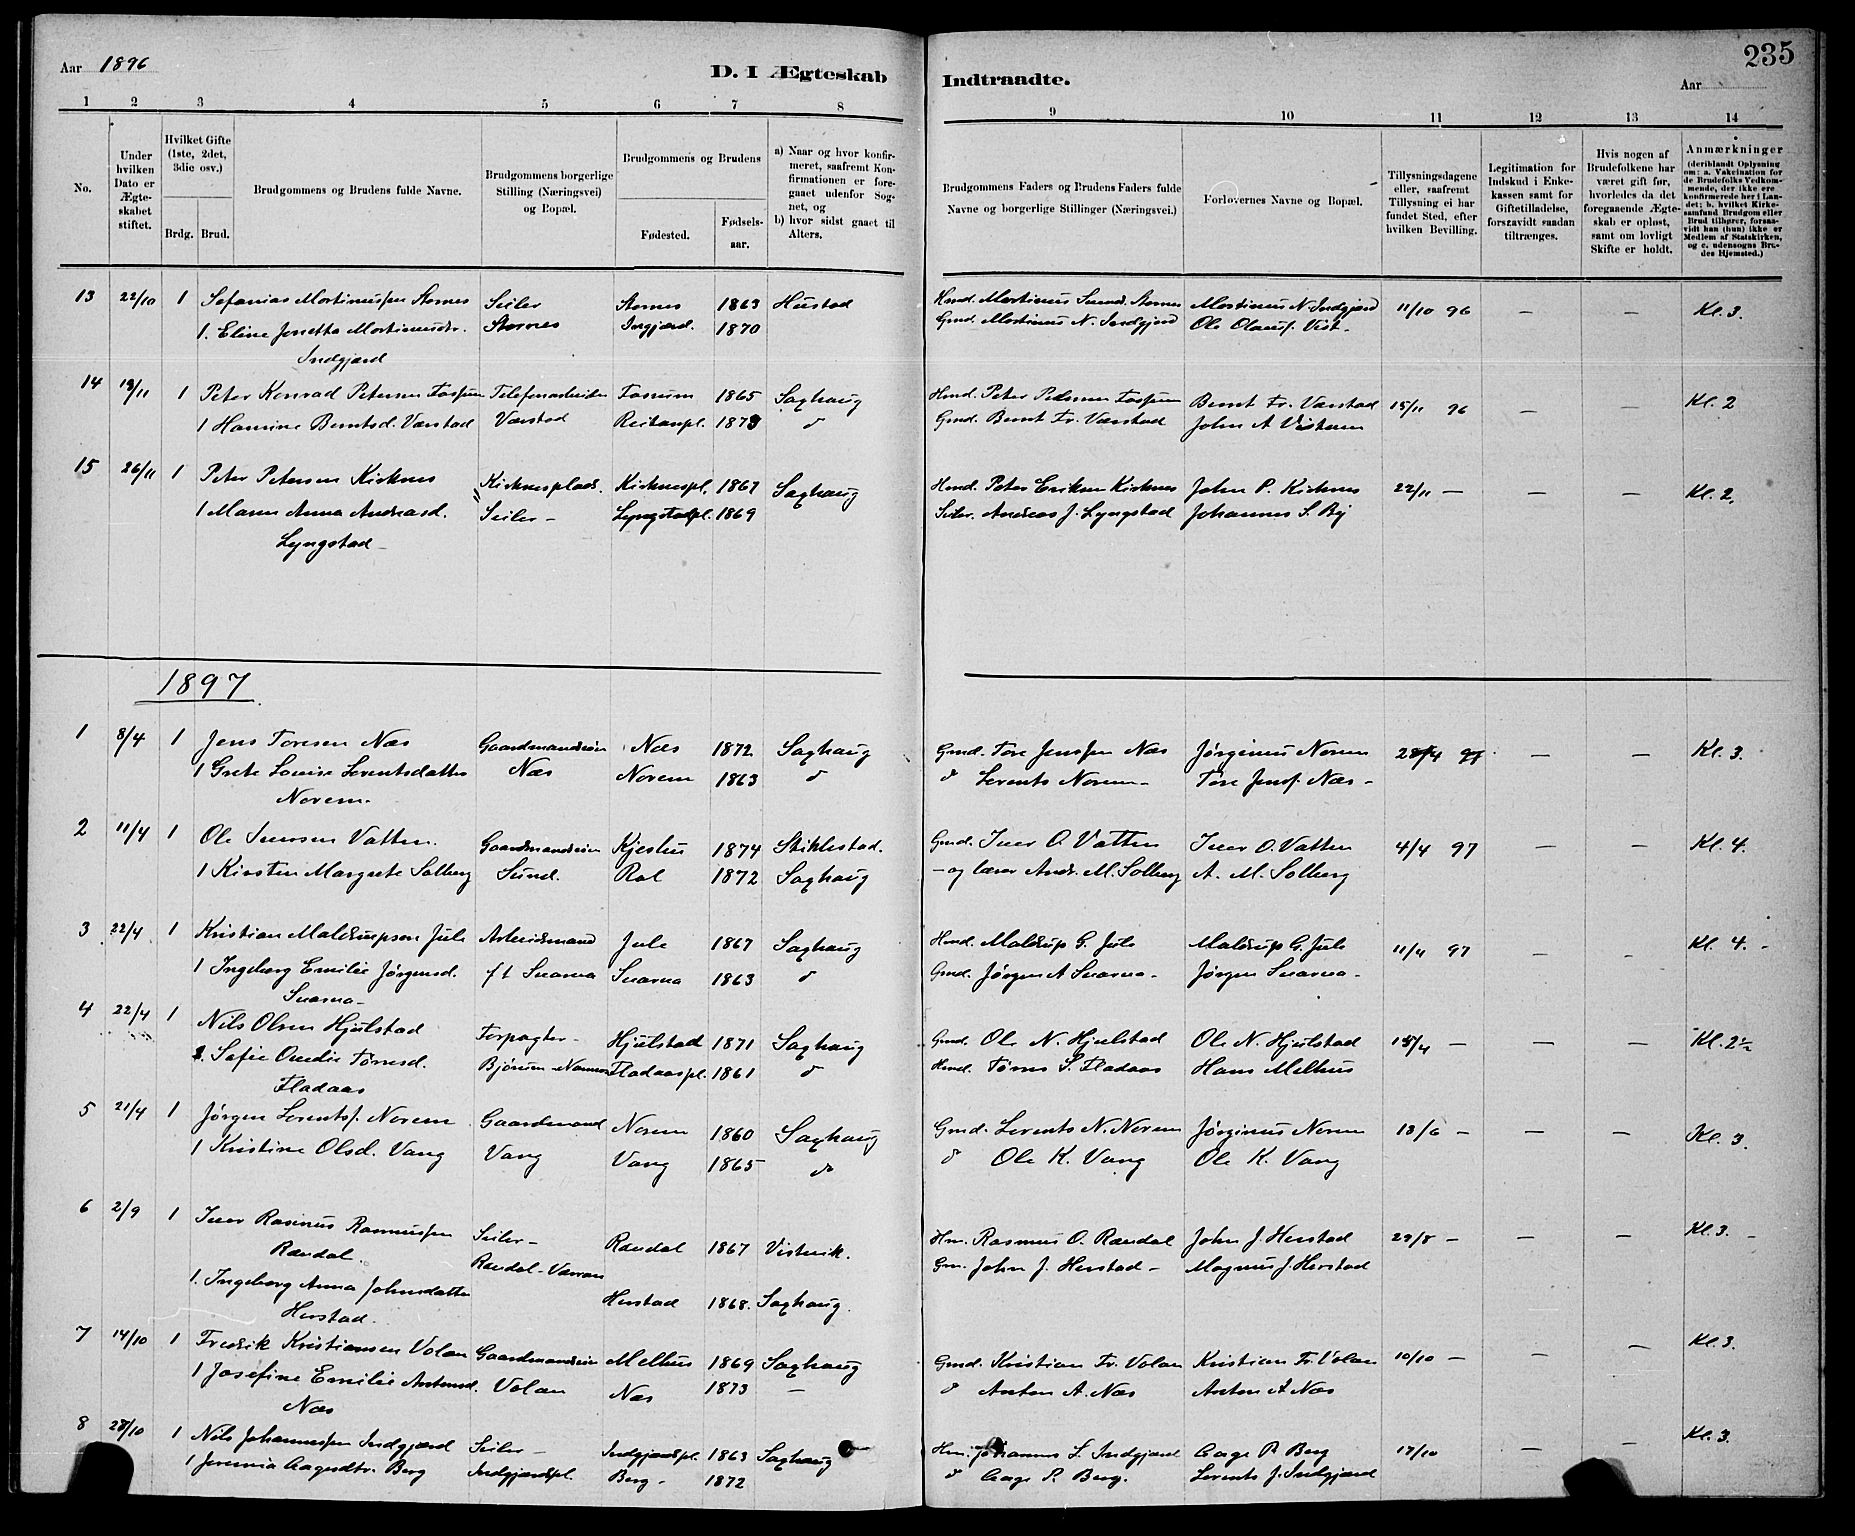 235
Aar 1896
D. I Ægteskab
Indtraadte.
Aar
1 2 3 4 5 6 7 8
9 10 11 12 13 14
No.
Under hvilken Dato er Ægteskabet stiftet.
Hvilket Gifte (1ste, 2det, 3die osv.)
Brdg. Brud.
Brudgommens og Brudens fulde Navne.
Brudgommens borgerlige Stilling (Næringsvei) og Bopæl.
Brudgommens og Brudens
Fødested.
Fødsels-aar.
a) Naar og hvor konfirmeret, saafremt Konfirmationen er foregaaet udenfor Sognet, og
b) hvor sidst gaaet til Alters.
Brudgommens Faders og Brudens Faders fulde Navne og borgerlige Stillinger (Næringsvei.)
Forlovernes Navne og Bopæl.
Tillysningsdagene eller, saafremt Tillysning ei har fundet Sted, efter hvilken Bevilling.
Legitimation for Indskud i Enkekassen samt for Giftetilladelse, forsaavidt saadan tiltrænges.
Hvis nogen af Brudefolkene har været gift før, hvorledes da det foregaaende Ægteskab er opløst, samt om lovligt Skifte er holdt.
Anmærkninger (deriblandt Oplysning om: a. Vakcination for de Brudefolks Vedkommende, der ikke ere konfirmerede her i Landet; b. hvilket Kirkesamfund Brudgom eller Brud tilhører, forsaavidt han (hun) ikke er Medlem af Statskirken, og c. udensogns Brudes Hjemsted.)
13 22/10 1 Sefanias Mortinussen Stornes Seiler Stornes 1863 Hustad Hmd. Mortinus Stornes Mortinus N. Indgjærd 11/10 96 — — Kl. 3.
1. Eline Jonetta Mortinusdr. Stornes Ingjærd. 1870 Gmd. Mortinus N. Indgjærd Ole Olausf. Vist.
Indgjærd
14 19/11 1 Peter Konrad Petersen Fossum Telefonarbeider Fossum 1865 Saxhaug Hmd. Peter Fossum Bernt Fr. Værstad 15/11 96 — — Kl. 2
1 Hansine Berntsd. Værstad Værstad Reitanpl. 1873 d Gmd. Bernt Fr. Værstad John A
15 26/11 1 Peter Petersen Kirknes Kirknesplads. Kirknespl. 1867 Saxhaug Hmd. Peter Eriksen Kirknes John P. Kirknes 22/11 — — — Kl. 2.
1 Maren Anna Andreasd. Seiler — Lyngstadpl. 1869 Seiler. Andreas J. Lyngstad Johannes S. By
Lyngstad —
1897
1 8/4 1 Jens Toresen Næs Gaardmandssøn Næs 1872 Saxhaug Gmd. Tore Jenssen Næs Jørginus Norem 97 — — Kl. 3.
1 Grete Louise Lorentsdatter Næs Norem 1863 d d Lorents Norem — Tore Jensf. Næs —
Norem.
2 11/4 1 Ole Iversen Vatten. Gaardmandssøn 1874 Stiklestad. Gmd. Iver O. Vatten Iver O. Vatten 4/4 97 — — Kl. 4.
1 Kirsten Margrete Solberg Sund. Rol 1872 Saxhaug — og lærer Andr. M. Solberg A. M. Solberg
3 22/4 1 Kristian Maldrupsen Jule Arbeidsmand Jule 1867 Saxhaug Hmd. Maldrup G. Jule Maldrup G. Jule 11/4 97 — — Kl. 4. —
1 Ingeborg Emilie Jørgensd. f.t. Snarva Snarva 1863 d Gmd. Jørgen A Snarva — Jørgen Snarva —
Snarva —
4 22/4 1 Nils Olsen Hjulstad Forpagter — Hjulstad 1871 Saxhaug Gmd. Ole N. Hjulstad Ole N. Hjulstad 18/4 — — — Kl. 2½
1. Sofie Ovedie Tørresd. Bjørum Fladaaspl. 1861 d Hmd. Tørres S. Fladaas Hans Melhus
Fladaas
5 21/4 1 Jørgen Lorentsf. Norem Gaardmand Norem 1860 Saxhaug Gmd. Lorents N. Norem Jørginus Norem 13/6 — — — Kl. 3.
1 Kristine Olsd. Vang Vang Vang 1865 d d Ole K. Vang Ole K. Vang
6 2/9 1 Iver Rasmus Rasmussen Seiler — Rændal 1867 Vistvik. Hm. Rasmus O. Rændal John J. Herstad 29/8 — — — Kl. 3. —
Rændal. Rændal — Værran Gm. John J. Herstad — Magnus J. Herstad
1. Ingeborg Anna Johnsdatter Herstad 1868. Saxhaug.
Herstad.
7 14/10 1 Fredrik Kristiansen Volan Gaardmandssøn Melhus 1869 Saxhaug Gmd. Kristian Fr. Volan Kristian Fr. Volan 10/10 — — Kl. 3.
1 Josefine Emilie Antonsd. Volan Næs 1873 — d Anton A. Næs Anton A Næs
Næs
8 28/10 1 Nils Johannessen Indgjærd Seiler — Indgjærdspl. 1863 Saxhaug Hm. Johannes L. Indgjærd Aage P. Berg 17/10 — — Kl. 3.
1 Jeremia Aagesdtr. Berg Indgjærdspl. Berg — 1872 d Aage P. Berg. Lorents J. Indgjærd